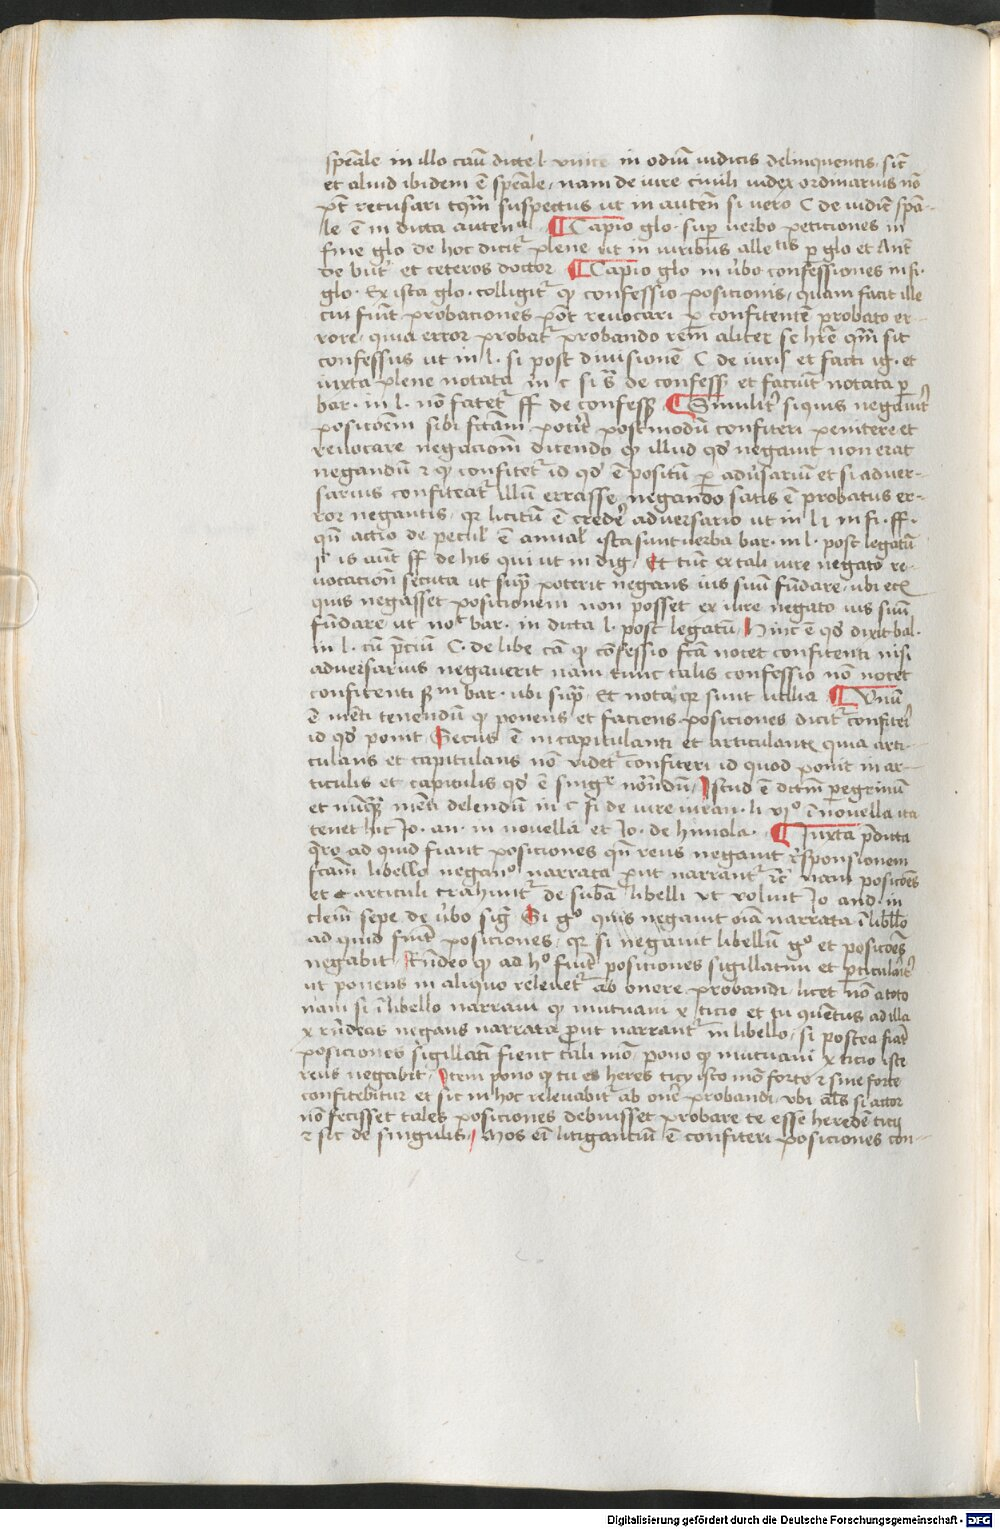 sp̄eale in illo casū dicte l vnice in odiū iudicis delinquentis, sic̄
et aliud ibidem ē sp̄eale, nam de iure ciuili iudex ordinarius nō
pōt recusari tq̄m suspectus ut in auten̄ si uero C de iudic̄ sp̄a-
le ē in dicta auten̄ ¶ Capio glo. sup̄ uerbo peticiones in
fine glo de hoc dicit̄ plene ut in iuribus alle^tis p̄ glo et Ant̄
de but̄ et ceteros doctor ¶ Capio glo in v̄bo confessiones nisi.
glo. Ex ista glo. colligit̄ qꝫ confessio posicionis, quam facit ille
cui fiūt probaciones pōt reuocari p̄ confitentē probato er-
rore, quia error probat̄ probando rem aliter se hr̄e qm̄ sit
confessus ut in l. si post diuisionē C de iuris et facti ig. et
iuxta plene notata in c si s̄ de confess̄ et faciūt notata p̄
bar. in l. nō fatet̄ ff de confess̄ ¶ Similit̄ si quis negauit̄
positōem sibi fc̄am potit̄ postmodū confiteri penitere et
reuocare negaciom̄ dicendo qꝫ illud qđ negauit non erat
negandū ⁊ qꝫ confitet̄ id qđ ē positū p̄ adu̓sariū et si aduer-
sarius confiteat̄ illū errasse negando satis ē probatus er-
ror negantis, qꝛ licitū ē creder̄ aduersario ut in l i in fi. ff.
qn̄ actio de pecul̄ ē annal̄ ista sunt uerba bar. in l. post legatū
is aūt ff de his qui ut in dig, Et tūc ex tali iure negato re-
uocation̄ secuta ut sup̄ poterit negans ius suū fūdare, ubi etc̄
quis negasset posicionem non posset ex iure negato ius suū
fūdare ut no^t bar. in dicta l. post legatū, Hinc ē qđ dixit bal.
in l. cū p̄ciū C. de libe cā qꝫ cōfessio fc̄a nocet confitenti nisi
aduersarius negauerit nam tunc talis confessio nō nocet
confitenti s̄m bar. ubi sup̄ Et nota qꝛ sunt utilia ¶ Vnū
ē mēti tenendū qꝫ ponens et faciens posiciones dicit̄ confiter̄
id qđ ponit Secus ē in capitulanti et articulante quia arti-
culans et capitulans nō videt̄ confiteri id quod ponit in ar-
ticulis et capitulis qđ ē sing̓r nōndū, Istud ē dictm̄ peregrinū
et nūqꝫ mēti delendū in c fi de iure iuran. li vi° ī nouella ita
tenet hic Jo. an. in nouella et Jo. de himola. ¶ Juxta p̄dicta
q̄ro ad quid fiant posiciones qn̄ reus negauit r̄sponsionem
fc̄am libello negan° narrata put narrant̄ rc̄ nam posicōes
et articuli trahunt̄ de subā libelli ut voluit Jo and. in
clem̄ sepe de v̄bo sig̓ Si g° quis negauit oīa narrata ī libello
ad quid fiūt posiciones, qꝛ si negauit libellū g° et posicōes
negabit Rn̄deo qꝫ ad h° fiūt posiciones sigillatim et p̄ticulārit̄
ut ponens in aliquo releuet̄ ab onere probandi, licet nō a toto
nam si ī libello narraui qꝫ mutuaui x ticio et tu quentus ad illa
x rn̄deas negans narrata put narrant̄ in libello, si postea fiāt
posiciones sigillatī fient tali mō, pono qꝫ mutuaui x ticio iste
reus negabit, Item pono qꝫ tu es heres ticy isto mō forte ⁊ sine forte
confitebitur et sic in hoc releuabit̄ ab oner̄ probandi, ubi als̄ si actor
nō fecisset tales posiciones debuisset probare te esse heredē ticij
⁊ sic de singulis, Mos eī litigantiū ē confiteri posiciones con-
Digitalisierung gefördert durch die Deutsche Forschungsgemeinschaft - DFG